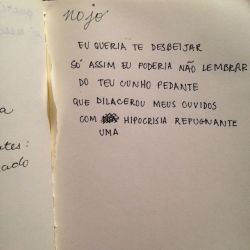 nojo
EU QUERIA TE DESBEIJAR
SÓ ASSIM EU PODERIA NÃO LEMBRAR
DO TEU CUNHO PEDANTE
QUE DILACEROU MEUS OUVIDOS
COM HIPOCRISIA REPUGNANTE
UMA
a
tes:
ado